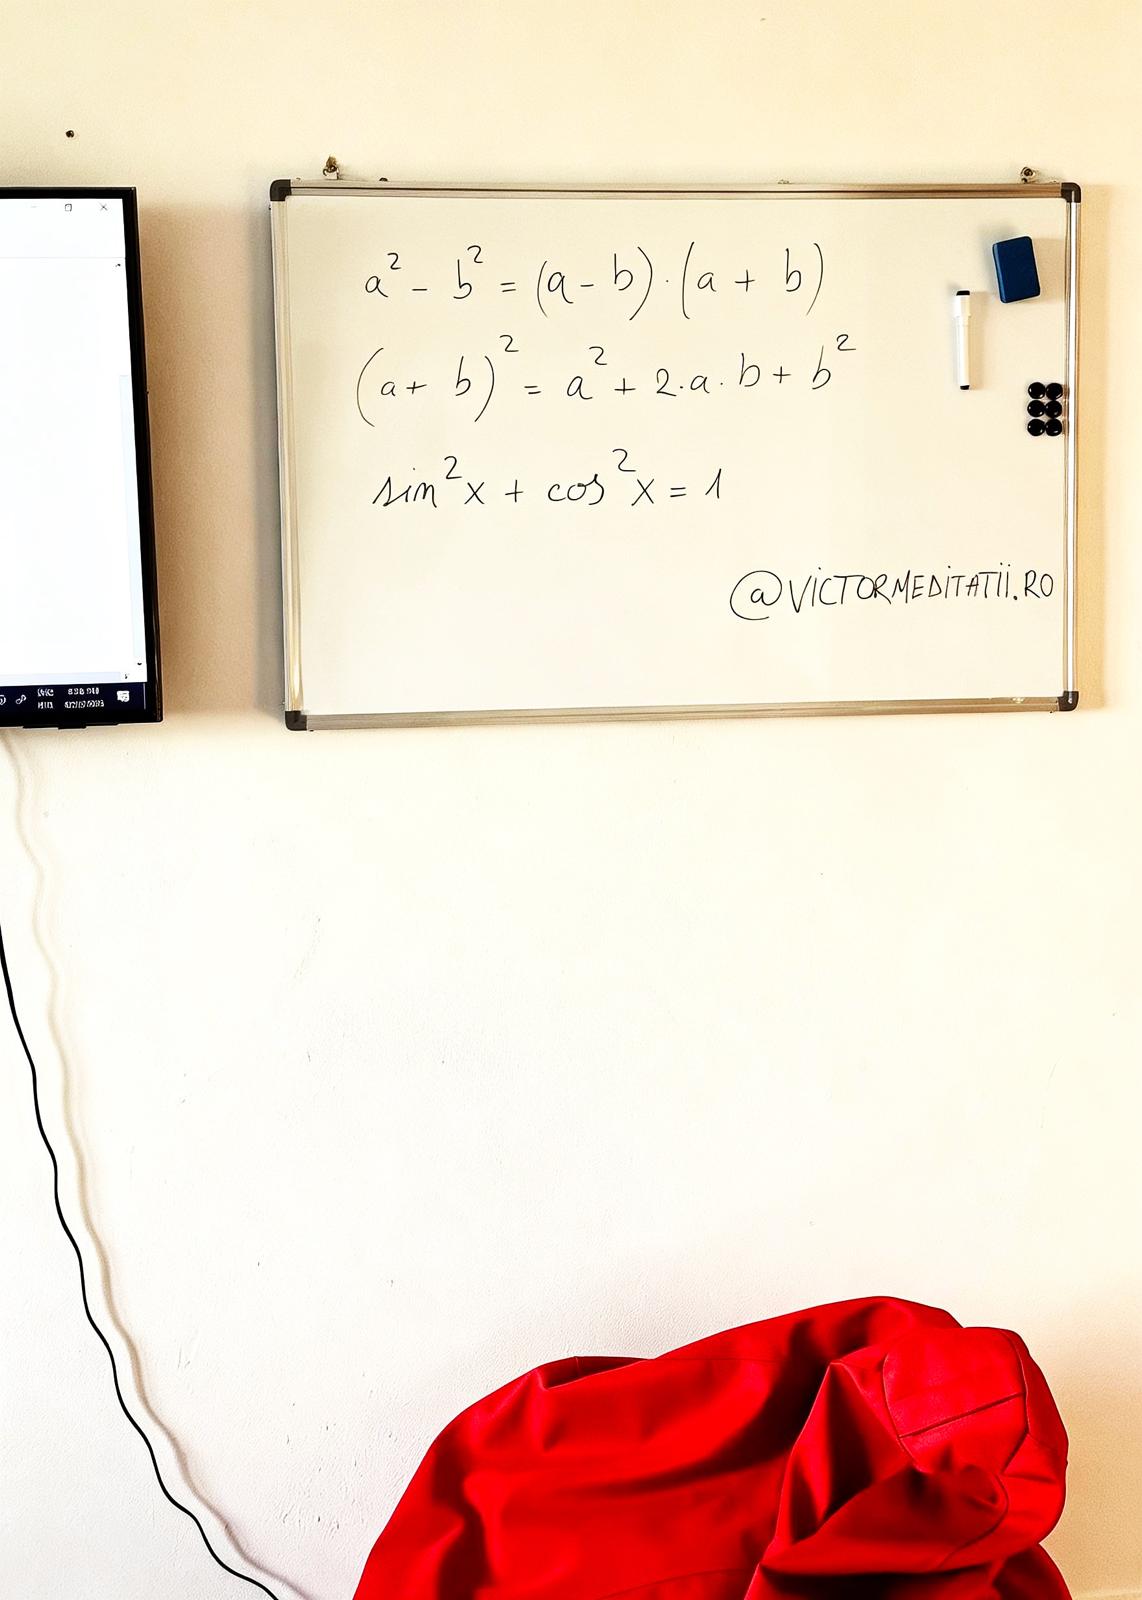 a² - b² = (a - b) · (a + b)
(a + b)² = a² + 2 · a · b + b²
sin²x + cos²x = 1
@VICTORMEDITATII.RO